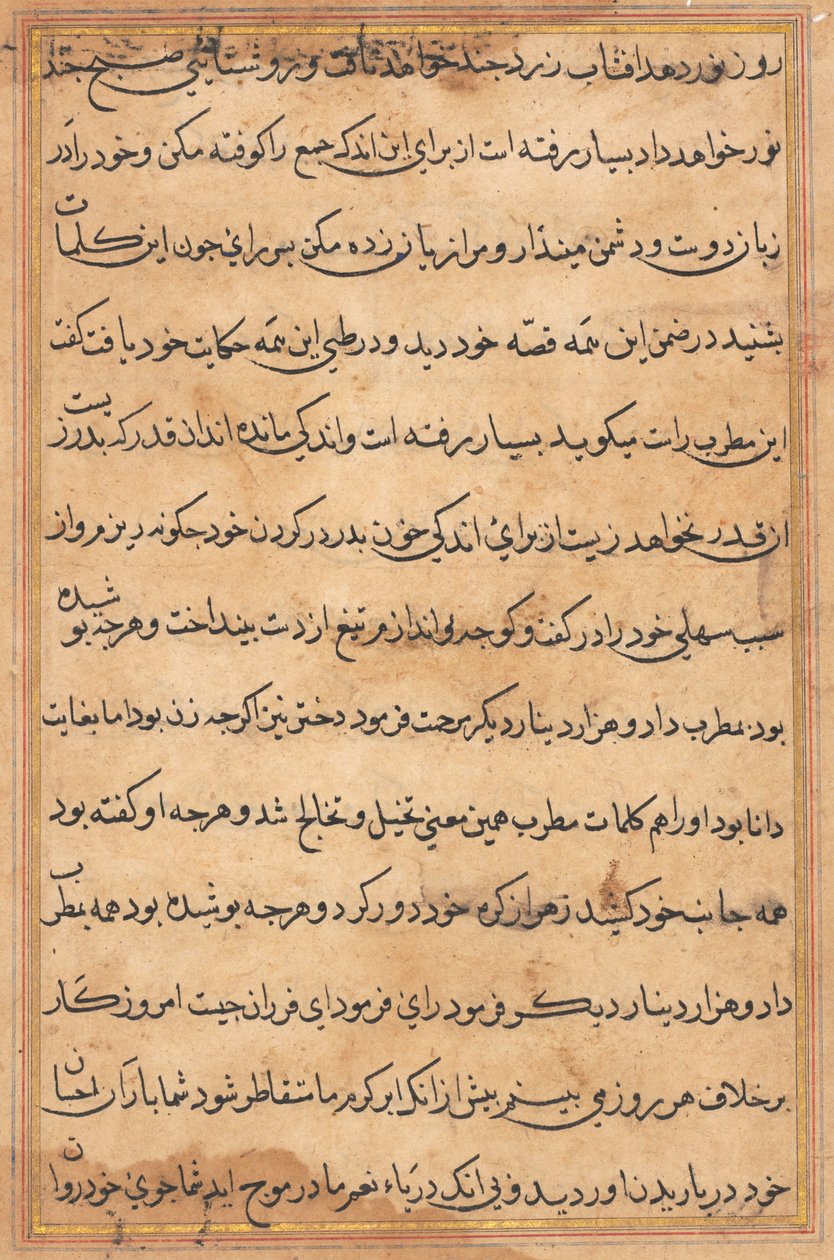 روز نور دهد افتاب زرد جند خواهد تافت و روشنایی صبح جند
نور خواهد داد بسیار رفته است از برای این اندک جمع را کوفته مکن و خود را در
زبان دوست و دشمن میندار و مرا زیان زده مکن بسر رای جون این کلمات
بشنید در ضمن این همه قصّه خود دید و در طی این همه حکایت خود یافت کفت
این مطرب راست میکوید بسیار رفته است و اندکی مانده اند از قدر که بدر زیست
از قدر نخواهد زیست از برای اندکی خون بدر در کردن خود جکونه ریزم و از
سبب سهلی خود را در کفت و کو جه اندازم تیغ از دست بینداخت و هرجه بوشیده
بود بمطرب داد و هزار دینار دیکر مرحمت فرمود دختر نیز اکرجه زن بود اما بغایت
دانا بود او را هم کلمات مطرب همین معنی تخیل و تخالج شد و هرجه او کفته بود
همه جانب خود کشید زهر از کره خود دور کرد و هرجه بوشیده بود همه بمطرب
داد و هزار دینار دیکر فرمود رای فرمود ای فرزان جیست امروز کار
بر خلاف هر روز می بینم بیش از انک ابر کرم ما متقاطر شود شما باران احسان
خود در باریدن اوردید و بی انک دریاء نعم ما در موج اید شما جوی خود روان